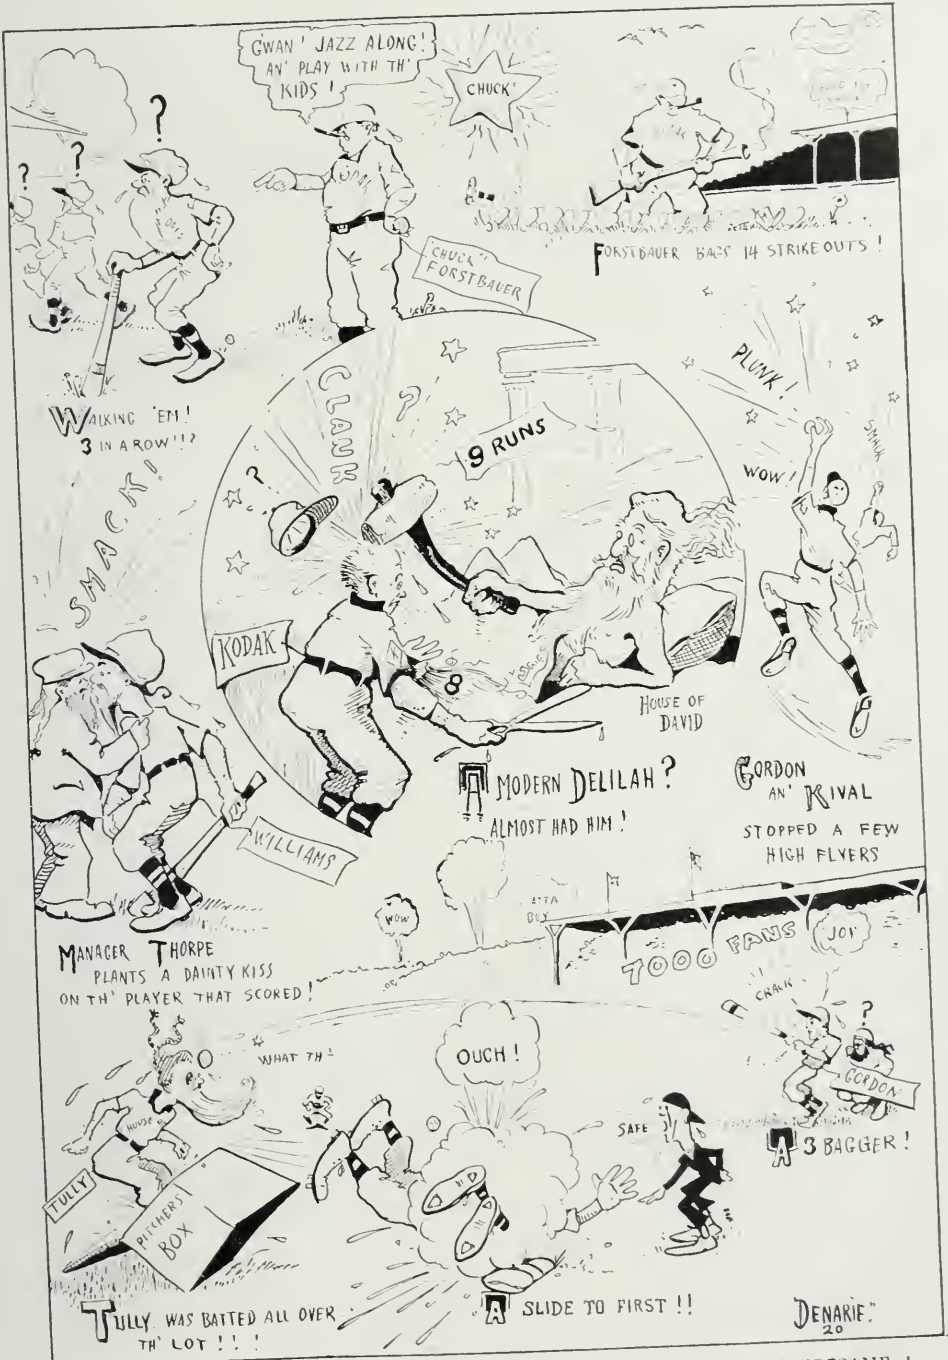 G'WAN! JAZZ ALONG!
AN' PLAY WITH TH'
KIDS!
CHUCK!
?
?
?
KODAK
"CHUCK"
FORSTBAUER
FORSTBAUER BAGS 14 STRIKEOUTS!
WALKING 'EM!
3 IN A ROW!!?
CLANK
?
?
9 RUNS
PLUNK!
WOW!
SMACK
SMACK!
KODAK
8
HOUSE OF
DAVID
A MODERN DELILAH?
ALMOST HAD HIM!
GORDON
AN' KIVAL
STOPPED A FEW
HIGH FLYERS
WILLIAMS
MANAGER THORPE
PLANTS A DAINTY KISS
ON TH' PLAYER THAT SCORED!
WOW
ATTA
BOY
7000 FANS
JOY
WHAT TH'!
OUCH!
CRACK
?
GORDON
A 3 BAGGER!
SAFE
HOUSE
TULLY
PITCHERS
BOX
TULLY WAS BATTED ALL OVER
TH' LOT!!!!
A SLIDE TO FIRST!!
DENARIE.
20